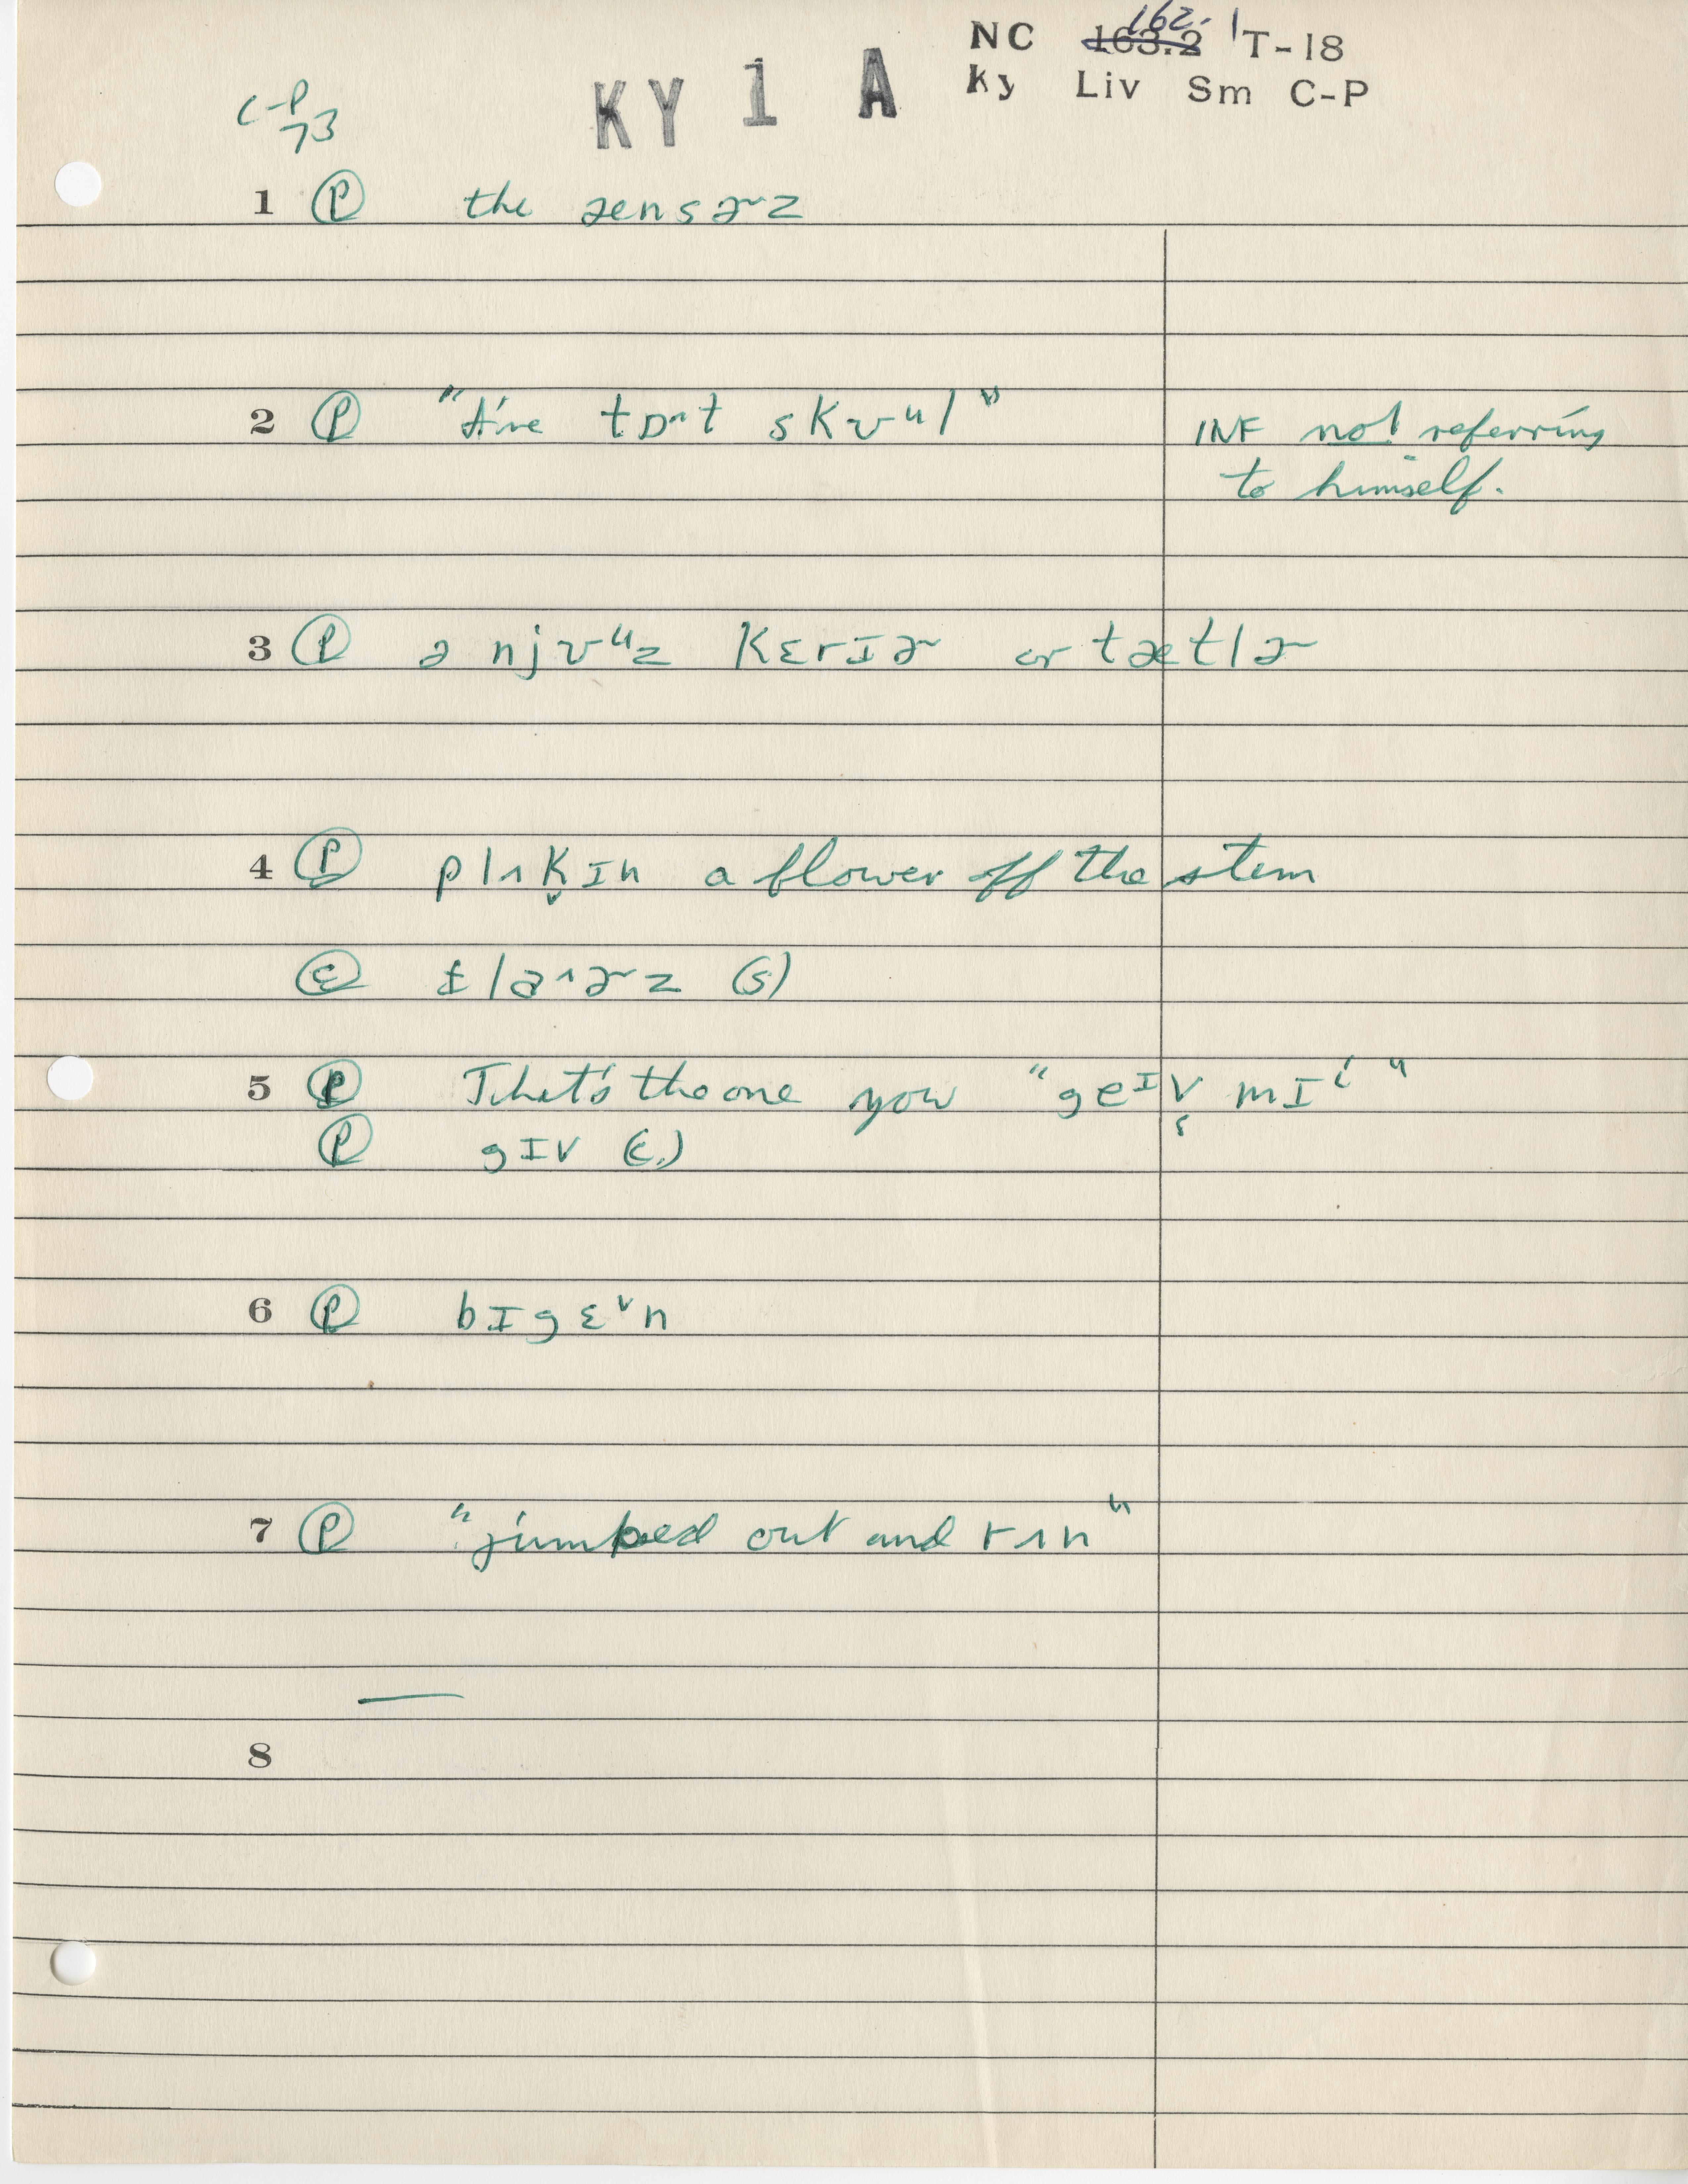 NC 162.1 T-18
KY 1 A
Ky Liv Sm C-P
C-P
73
1 Ⓟ the ænsɚz
2 Ⓟ "I've tɒ^t skʊᵘl" INF not referring
to himself.
3 Ⓟ ə njʊᵘz kɛrɪɚ or tætlɚ
4 Ⓟ plʌk̬ɪn a flower off the stem
Ⓒ flɑ^ɚz (s)
5 Ⓟ That's the one you "geᴵv mɪⁱ"
Ⓟ gɪv (c.)
6 Ⓟ bɪgɛˇn
7 Ⓟ "jumped out and rʌn"
8